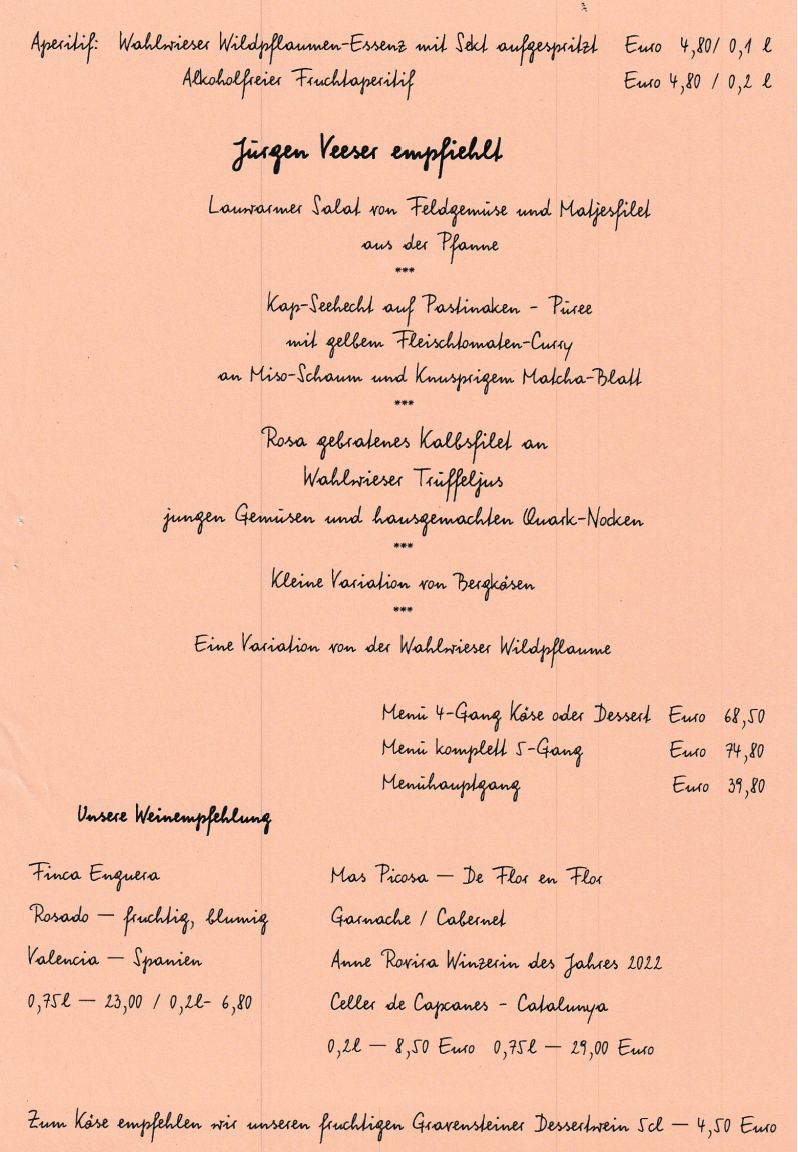 Aperitif: Wahlwieser Wildpflaumen-Essenz mit Sekt aufgespritzt Euro 4,80/ 0,1 l
Alkoholfreier Fruchtaperitif Euro 4,80 / 0,2 l
Jürgen Veeser empfiehlt
Lauwarmer Salat von Feldgemüse und Matjesfilet
aus der Pfanne
***
Kap-Seehecht auf Pastinaken - Püree
mit gelbem Fleischtomaten-Curry
an Miso-Schaum und Knusprigem Matcha-Blatt
***
Rosa gebratenes Kalbsfilet an
Wahlwieser Trüffeljus
jungen Gemüsen und hausgemachten Quark-Nocken
***
Kleine Variation von Bergkäsen
***
Eine Variation von der Wahlwieser Wildpflaume
Menü 4-Gang Käse oder Dessert Euro 68,50
Menü komplett 5-Gang Euro 74,80
Menühauptgang Euro 39,80
Unsere Weinempfehlung
Finca Enguera
Rosado — fruchtig, blumig
Valencia — Spanien
0,75l — 23,00 / 0,2l- 6,80
Mas Picosa — De Flor en Flor
Garnache / Cabernet
Anne Rovira Winzerin des Jahres 2022
Celler de Capcanes - Catalunya
0,2l — 8,50 Euro 0,75l — 29,00 Euro
Zum Käse empfehlen wir unseren fruchtigen Gravensteiner Dessertwein 5cl — 4,50 Euro